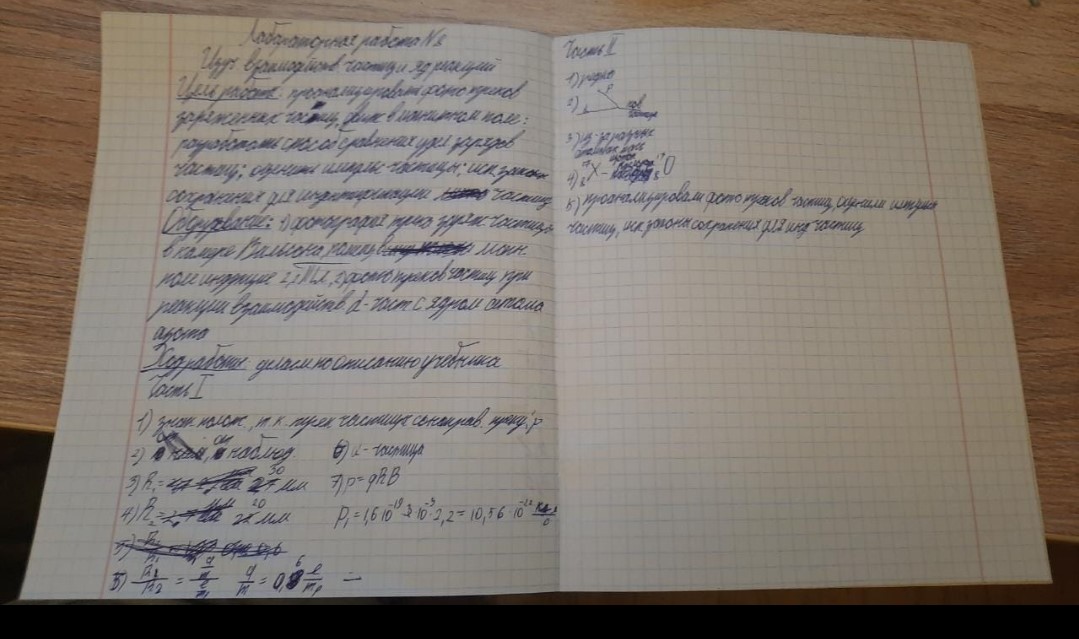 Лабораторная работа №8
Изуч взаимодейств. частиц и яд реакций
Цель работы: проанализировать фото треков
заряженных частиц, движ в магнитном поле:
разработать способ сравнения удел зарядов
частиц; оценить импульс частицы; исп законы
сохранения для индентификации частиц
Оборудование: 1) фотография трека заряж. частицы
в камере Вильсона, помещ в магн.
поле индукцие 2,2 Тл, 2) фото треков частиц при
реакции взаимодейств α-част с ядром атома
азота
Ход работы: делаем по описанию учебника
Часть I
1) знак полож, т.к. трек частицы сонаправ. треку p
2) наблюд.
3) R₁ = 30 мм
4) R₂ = 20 мм
5) R₁/R₂ = q/m = 0,6 e/mₚ
6) α-частица
7) p = qRB
p₁ = 1,6·10⁻¹⁹ 3·10⁻³·2,2 = 10,56·10⁻²²
Часть II
1) ядро
2) α p нов частица
3) из-за разные
4) X – ¹⁷₈O
5) проанализировали фото треков частиц, оценили импульс
частиц, исп законы сохранения для инд частиц